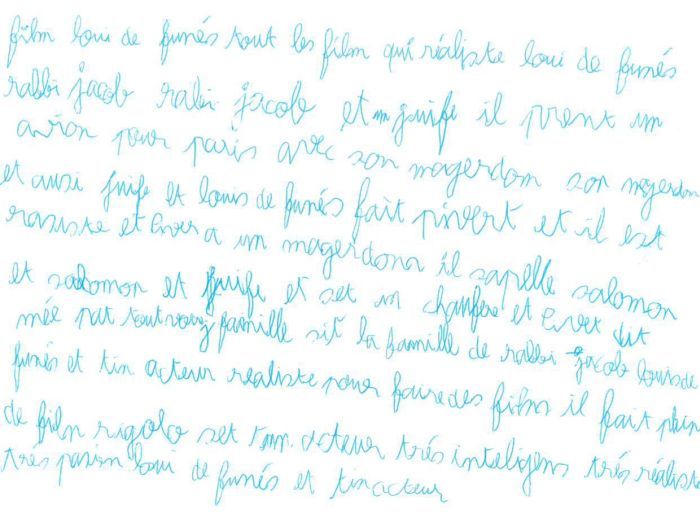 film loui de funés tout les film qui réaliste loui de funés
rabbi jacob rabi jacob et un juife il prent un
avion pour paris avec son magerdom son magerdom
et ausi juife et louis de funés fait pivert et il est
rasiste et Civer a un magerdom il sapelle salomon
et salomon et juife et set un chaufere et Civer dit
mée pat tout votre famille sit la famille de rabbi jacob louis de
funés et tin acteur realiste pour faire des films il fait plein
de film rigolo set t'un acteur trés inteligens trés réaliste
trés pasion loui de funés et tin acteur